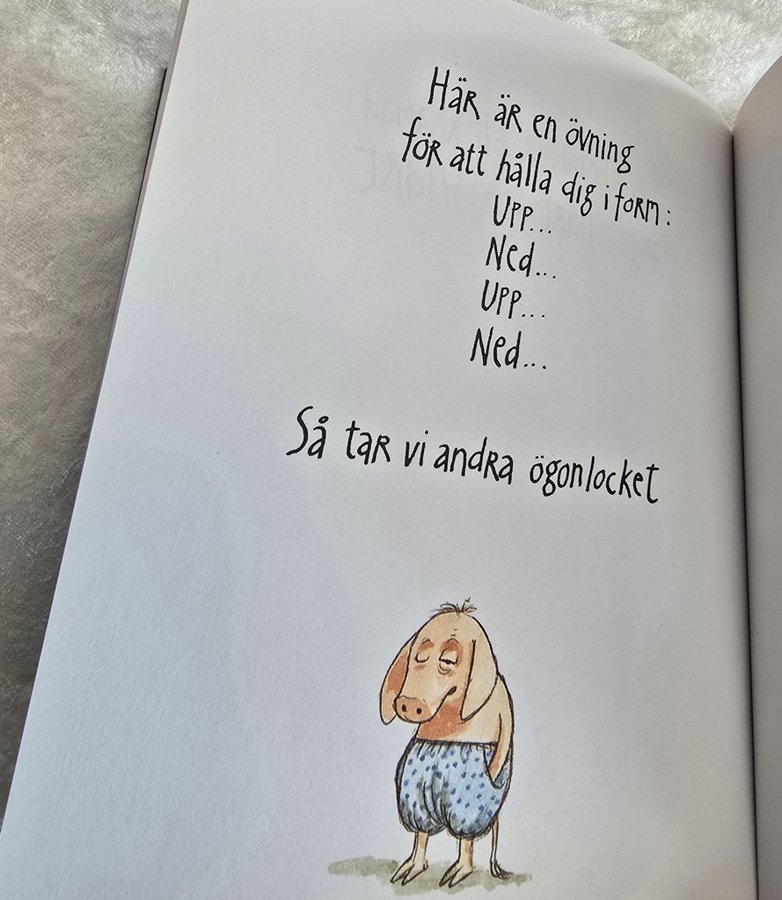 Här är en övning
för att hålla dig i form:
Upp...
Ned...
Upp...
Ned...
Så tar vi andra ögonlocket